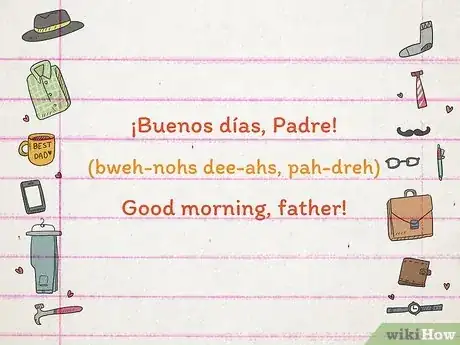 ¡Buenos días, Padre!
(bweh-nohs dee-ahs, pah-dreh)
Good morning, father!
BEST
DAD
wikiHow